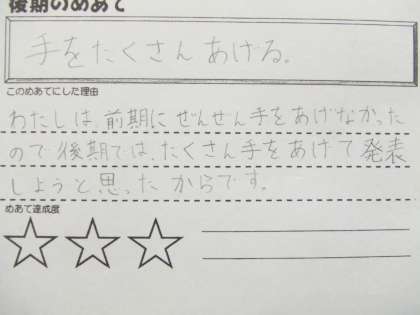 後期のめあて
手をたくさんあげる。
このめあてにした理由
わたしは、前期にぜんぜん手をあげなかった
ので後期では、たくさん手をあげて発表
しようと思ったからです。
めあて達成度